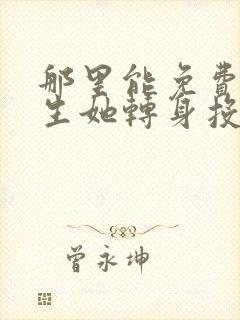 那里能免費
生她轉身投
曾永坤